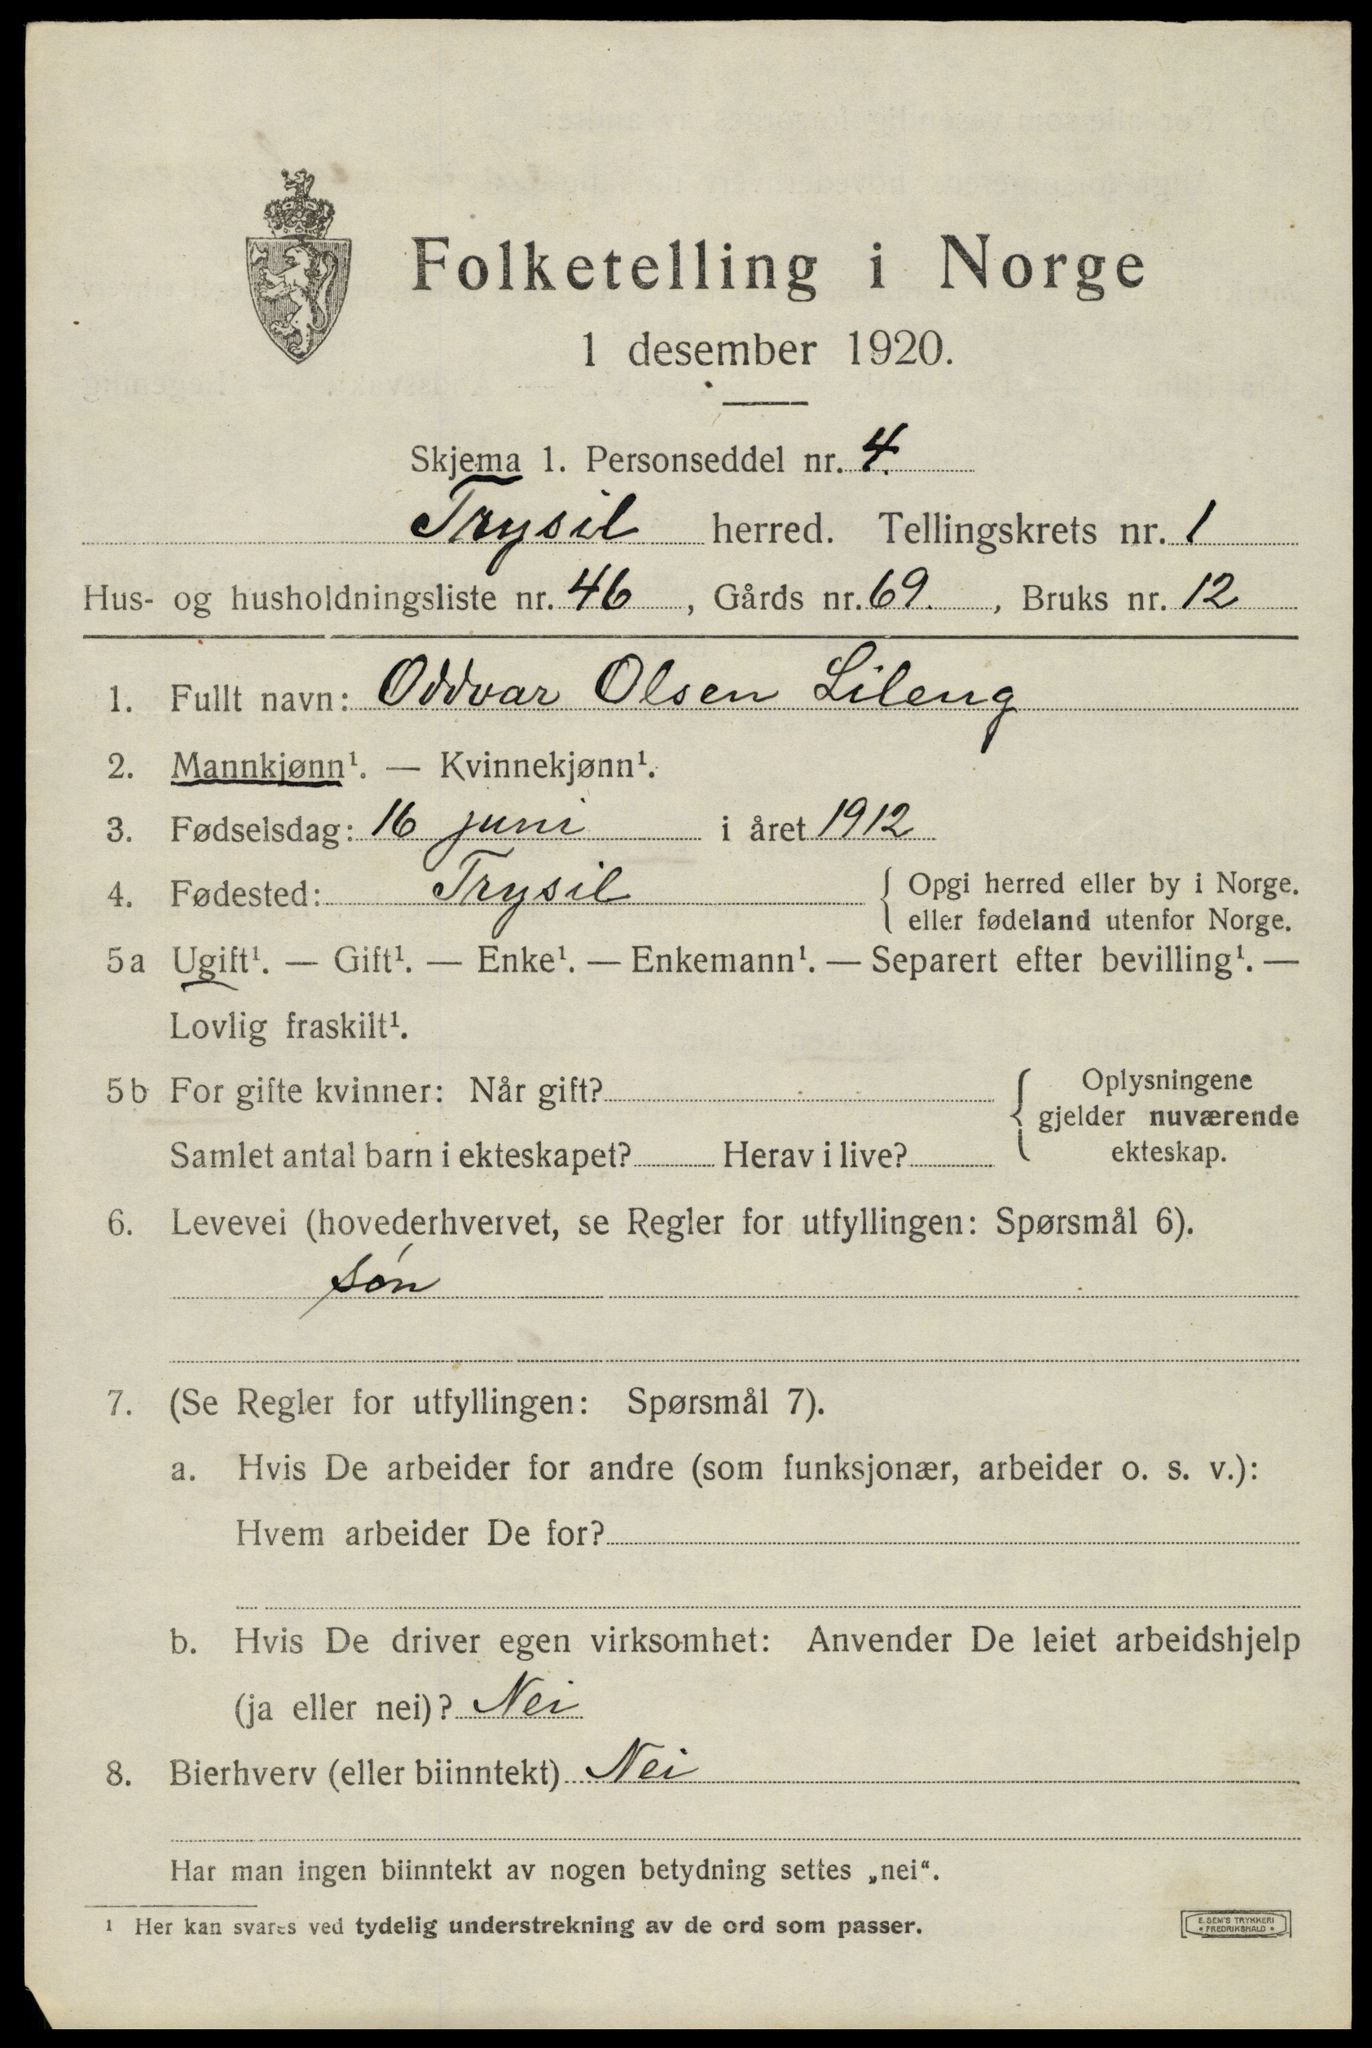 Folketelling i Norge
1 desember 1920.
Skjema 1. Personseddel nr. 4.
Trysil herred. Tellingskrets nr. 1
Hus- og husholdningsliste nr. 46, Gårds nr. 69., Bruks nr. 12
1. Fullt navn: Oddvar Olsen Lileng
2. Mannkjønn¹. — Kvinnekjønn¹.
3. Fødselsdag: 16 juni i året 1912
4. Fødested: Trysil { Opgi herred eller by i Norge.
eller fødeland utenfor Norge.
5a Ugift¹. — Gift¹. — Enke¹. — Enkemann¹. — Separert efter bevilling¹. —
Lovlig fraskilt¹.
5b For gifte kvinner: Når gift? { Oplysningene
gjelder nuværende
Samlet antal barn i ekteskapet? Herav i live? ekteskap.
6. Levevei (hovederhvervet, se Regler for utfyllingen: Spørsmål 6).
søn
7. (Se Regler for utfyllingen: Spørsmål 7).
a. Hvis De arbeider for andre (som funksjonær, arbeider o. s. v.):
Hvem arbeider De for?
b. Hvis De driver egen virksomhet: Anvender De leiet arbeidshjelp
(ja eller nei)? Nei
8. Bierhverv (eller biinntekt) Nei
Har man ingen biinntekt av nogen betydning settes „nei“.
¹ Her kan svares ved tydelig understrekning av de ord som passer.
E. SEM'S TRYKKERI
FREDRIKSHALD